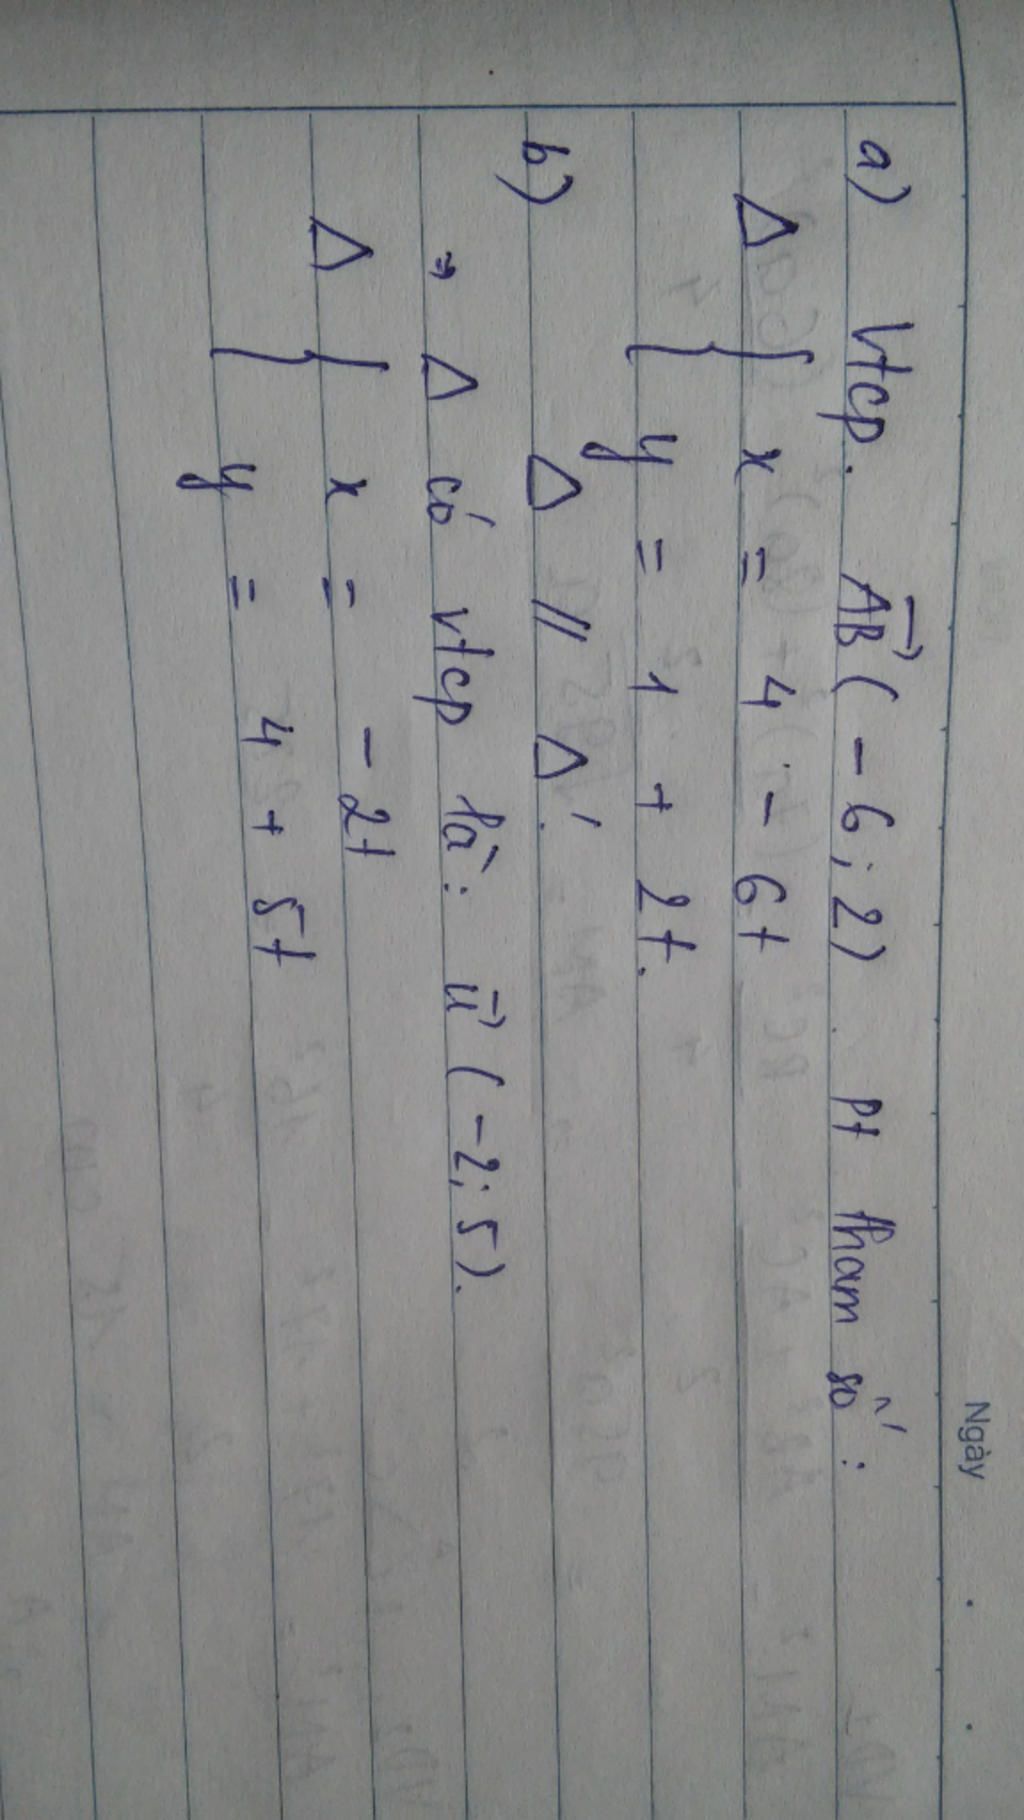 Ngày
a) Vtcp. AB⃗ ( - 6 ; 2 ) Pt tham số :
Δ { x = 4 - 6t
y = 1 + 2t.
b) Δ // Δ'.
⇒ Δ có vtcp là : u⃗ ( -2 ; 5 ).
Δ { x = - 2t
y = 4 + 5t